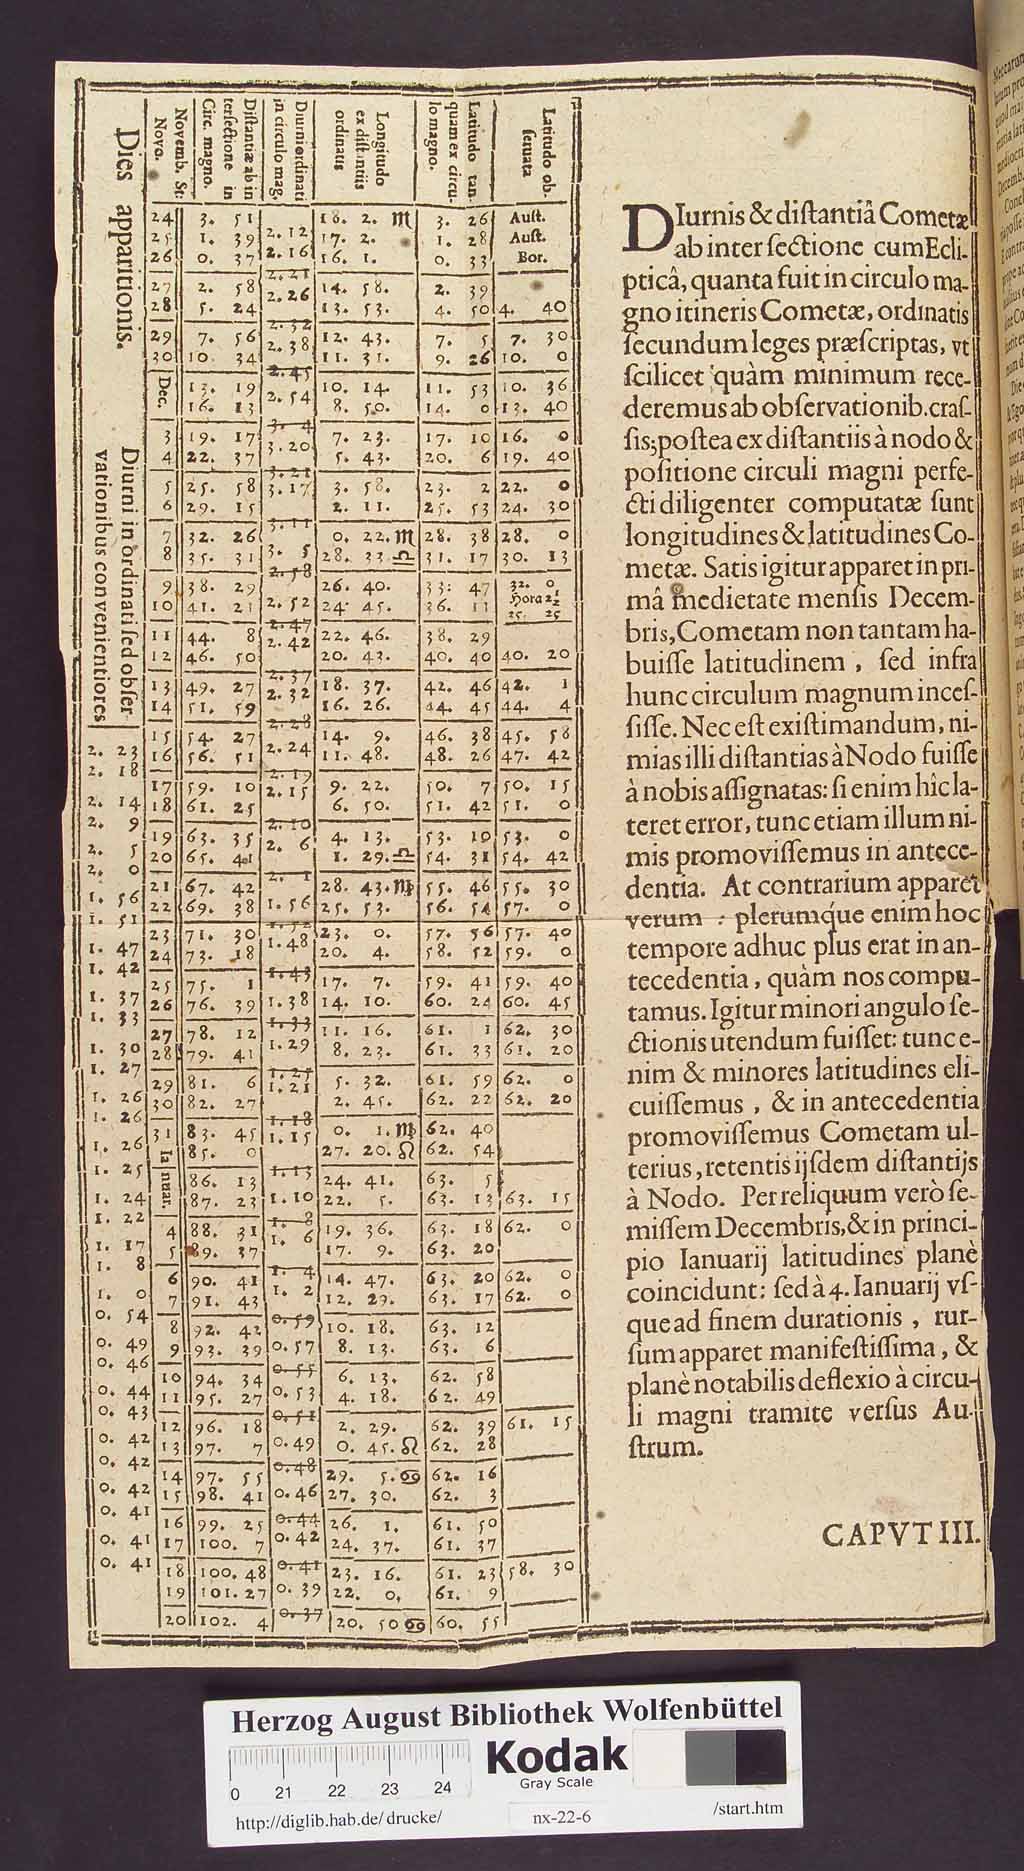 Dies apparitionis.
Diurni in ordinati sed obser-
vationibus convenientiores
Novemb. St:
Novo.
Distantiæ ab in
tersectione in
Circ. magno.
Diurni ordinati
in circulo mag.
Longitudo
ex distantiis
ordinatis
Latitudo tan
quam ex circu-
lo magno.
Latitudo ob.
servata
24 3. 51 18. 2. ♏ 3. 26 Aust.
2. 12
25 1. 39 17. 2. 1. 28 Aust.
2. 16
26 0. 37 16. 1. 0. 33 Bor.
2. 21
27 2. 58 14. 58. 2. 39
2. 26
28 5. 24 13. 53. 4. 50 4. 40
2. 32
29 7. 56 12. 43. 7. 5 7. 30
2. 38
30 10. 34 11. 31. 9. 26 10. 0
2. 45
Dec.
13. 19 10. 14. 11. 53 10. 36
2. 54
16. 13 8. 50. 14. 0 13. 40
3. 4
3 19. 17 7. 23. 17. 10 16. 0
3. 20
4 22. 37 5. 43. 20. 6 19. 40
3. 21
5 25. 58 3. 58. 23. 2 22. 0
3. 17
6 29. 15 2. 11. 25. 53 24. 30
3. 11
7 32. 26 0. 22. ♏ 28. 38 28. 0
3. 5
8 35. 31 28. 33. ♎ 31. 17 30. 13
2. 58
9 38. 29 26. 40. 33: 47 32. 0
2. 52 Hora 2½
10 41. 21 24. 45. 36. 11 25. 25
2. 47
11 44. 8 22. 46. 38. 29
2. 42
12 46. 50 20. 43. 40. 40 40. 20
2. 37
13 49. 27 18. 37. 42. 46 42. 1
2. 32
14 51. 59 16. 26. 44. 45 44. 4
2. 28
15 54. 27 14. 9. 46. 38 45. 58
2. 23 2. 24
16 56. 51 11. 48. 48. 26 47. 42
2. 18 2. 19
17 59. 10 9. 22. 50. 7 50. 15
2. 14 2. 15
18 61. 25 6. 50. 51. 42 51. 0
2. 9 2. 10
19 63. 35 4. 13. 53. 10 53. 0
2. 5 2. 6
20 65. 41 1. 29. ♎ 54. 31 54. 42
2. 0 2. 1
21 67. 42 28. 43. ♍ 55. 46 55. 30
1. 56 1. 56
22 69. 38 25. 53. 56. 54 57. 0
1. 51 1. 52
23 71. 30 23. 0. 57. 56 57. 40
1. 47 1. 48
24 73. 18 20. 4. 58. 52 59. 0
1. 42 1. 43
25 75. 1 17. 7. 59. 41 59. 40
1. 37 1. 38
26 76. 39 14. 10. 60. 24 60. 45
1. 33 1. 33
27 78. 12 11. 16. 61. 1 62. 30
1. 30 1. 29
28 79. 41 8. 23. 61. 33 61. 20
1. 27 1. 25
29 81. 6 5. 32. 61. 59 62. 0
1. 26 1. 21
30 82. 27 2. 45. 62. 22 62. 20
1. 26 1. 18
31 83. 45 0. 1. ♍ 62. 40
1. 26 1. 15
Ianuar.
85. 0 27. 20. ♌ 62. 54
1. 25 1. 13
86. 13 24. 41. 63. 5
1. 24 1. 10
87. 23 22. 5. 63. 13 63. 15
1. 22 1. 8
4 88. 31 19. 36. 63. 18 62. 0
1. 17 1. 6
5 89. 37 17. 9. 63. 20
1. 8 1. 4
6 90. 41 14. 47. 63. 20 62. 0
1. 0 1. 2
7 91. 43 12. 29. 63. 17 62. 0
0. 54 0. 59
8 92. 42 10. 18. 63. 12
0. 49 0. 57
9 93. 39 8. 13. 63. 6
0. 46 0. 55
10 94. 34 6. 13. 62. 58
0. 44 0. 53
11 95. 27 4. 18. 62. 49
0. 43 0. 51
12 96. 18 2. 29. 62. 39 61. 15
0. 42 0. 49
13 97. 7 0. 45. ♌ 62. 28
0. 42 0. 48
14 97. 55 29. 5. ♋ 62. 16
0. 42 0. 46
15 98. 41 27. 30. 62. 3
0. 41 0. 44
16 99. 25 26. 1. 61. 50
0. 41 0. 42
17 100. 7 24. 37. 61. 37
0. 41 0. 41
18 100. 48 23. 16. 61. 23 58. 30
0. 39
19 101. 27 22. 0. 61. 9
0. 37
20 102. 4 20. 50 ♋ 60. 55
DIurnis & distantiâ Cometæ
ab intersectione cum Ecli-
pticâ, quanta fuit in circulo ma-
gno itineris Cometæ, ordinatis
secundum leges præscriptas, vt
scilicet quàm minimum rece-
deremus ab observationib. cras-
sis; postea ex distantiis à nodo &
positione circuli magni perfe-
cti diligenter computatæ sunt
longitudines & latitudines Co-
metæ. Satis igitur apparet in pri-
mâ medietate mensis Decem-
bris, Cometam non tantam ha-
buisse latitudinem, sed infra
hunc circulum magnum inces-
sisse. Nec est existimandum, ni-
mias illi distantias à Nodo fuisse
à nobis assignatas: si enim hîc la-
teret error, tunc etiam illum ni-
mis promovissemus in antece-
dentia. At contrarium apparet
verum : plerumq́ue enim hoc
tempore adhuc plus erat in an-
tecedentia, quàm nos compu-
tamus. Igitur minori angulo se-
ctionis utendum fuisset: tunc e-
nim & minores latitudines eli-
cuissemus, & in antecedentia
promovissemus Cometam ul-
terius, retentis ijsdem distantijs
à Nodo. Per reliquum verò se-
missem Decembris, & in princi-
pio Ianuarij latitudines planè
coincidunt: sed à 4. Ianuarij vs-
que ad finem durationis, rur-
sum apparet manifestissima, &
planè notabilis deflexio à circu-
li magni tramite versus Au-
strum.
CAPVT III.
Herzog August Bibliothek Wolfenbüttel
Kodak
Gray Scale
0 21 22 23 24
http://diglib.hab.de/ drucke/
nx-22-6
/start.htm